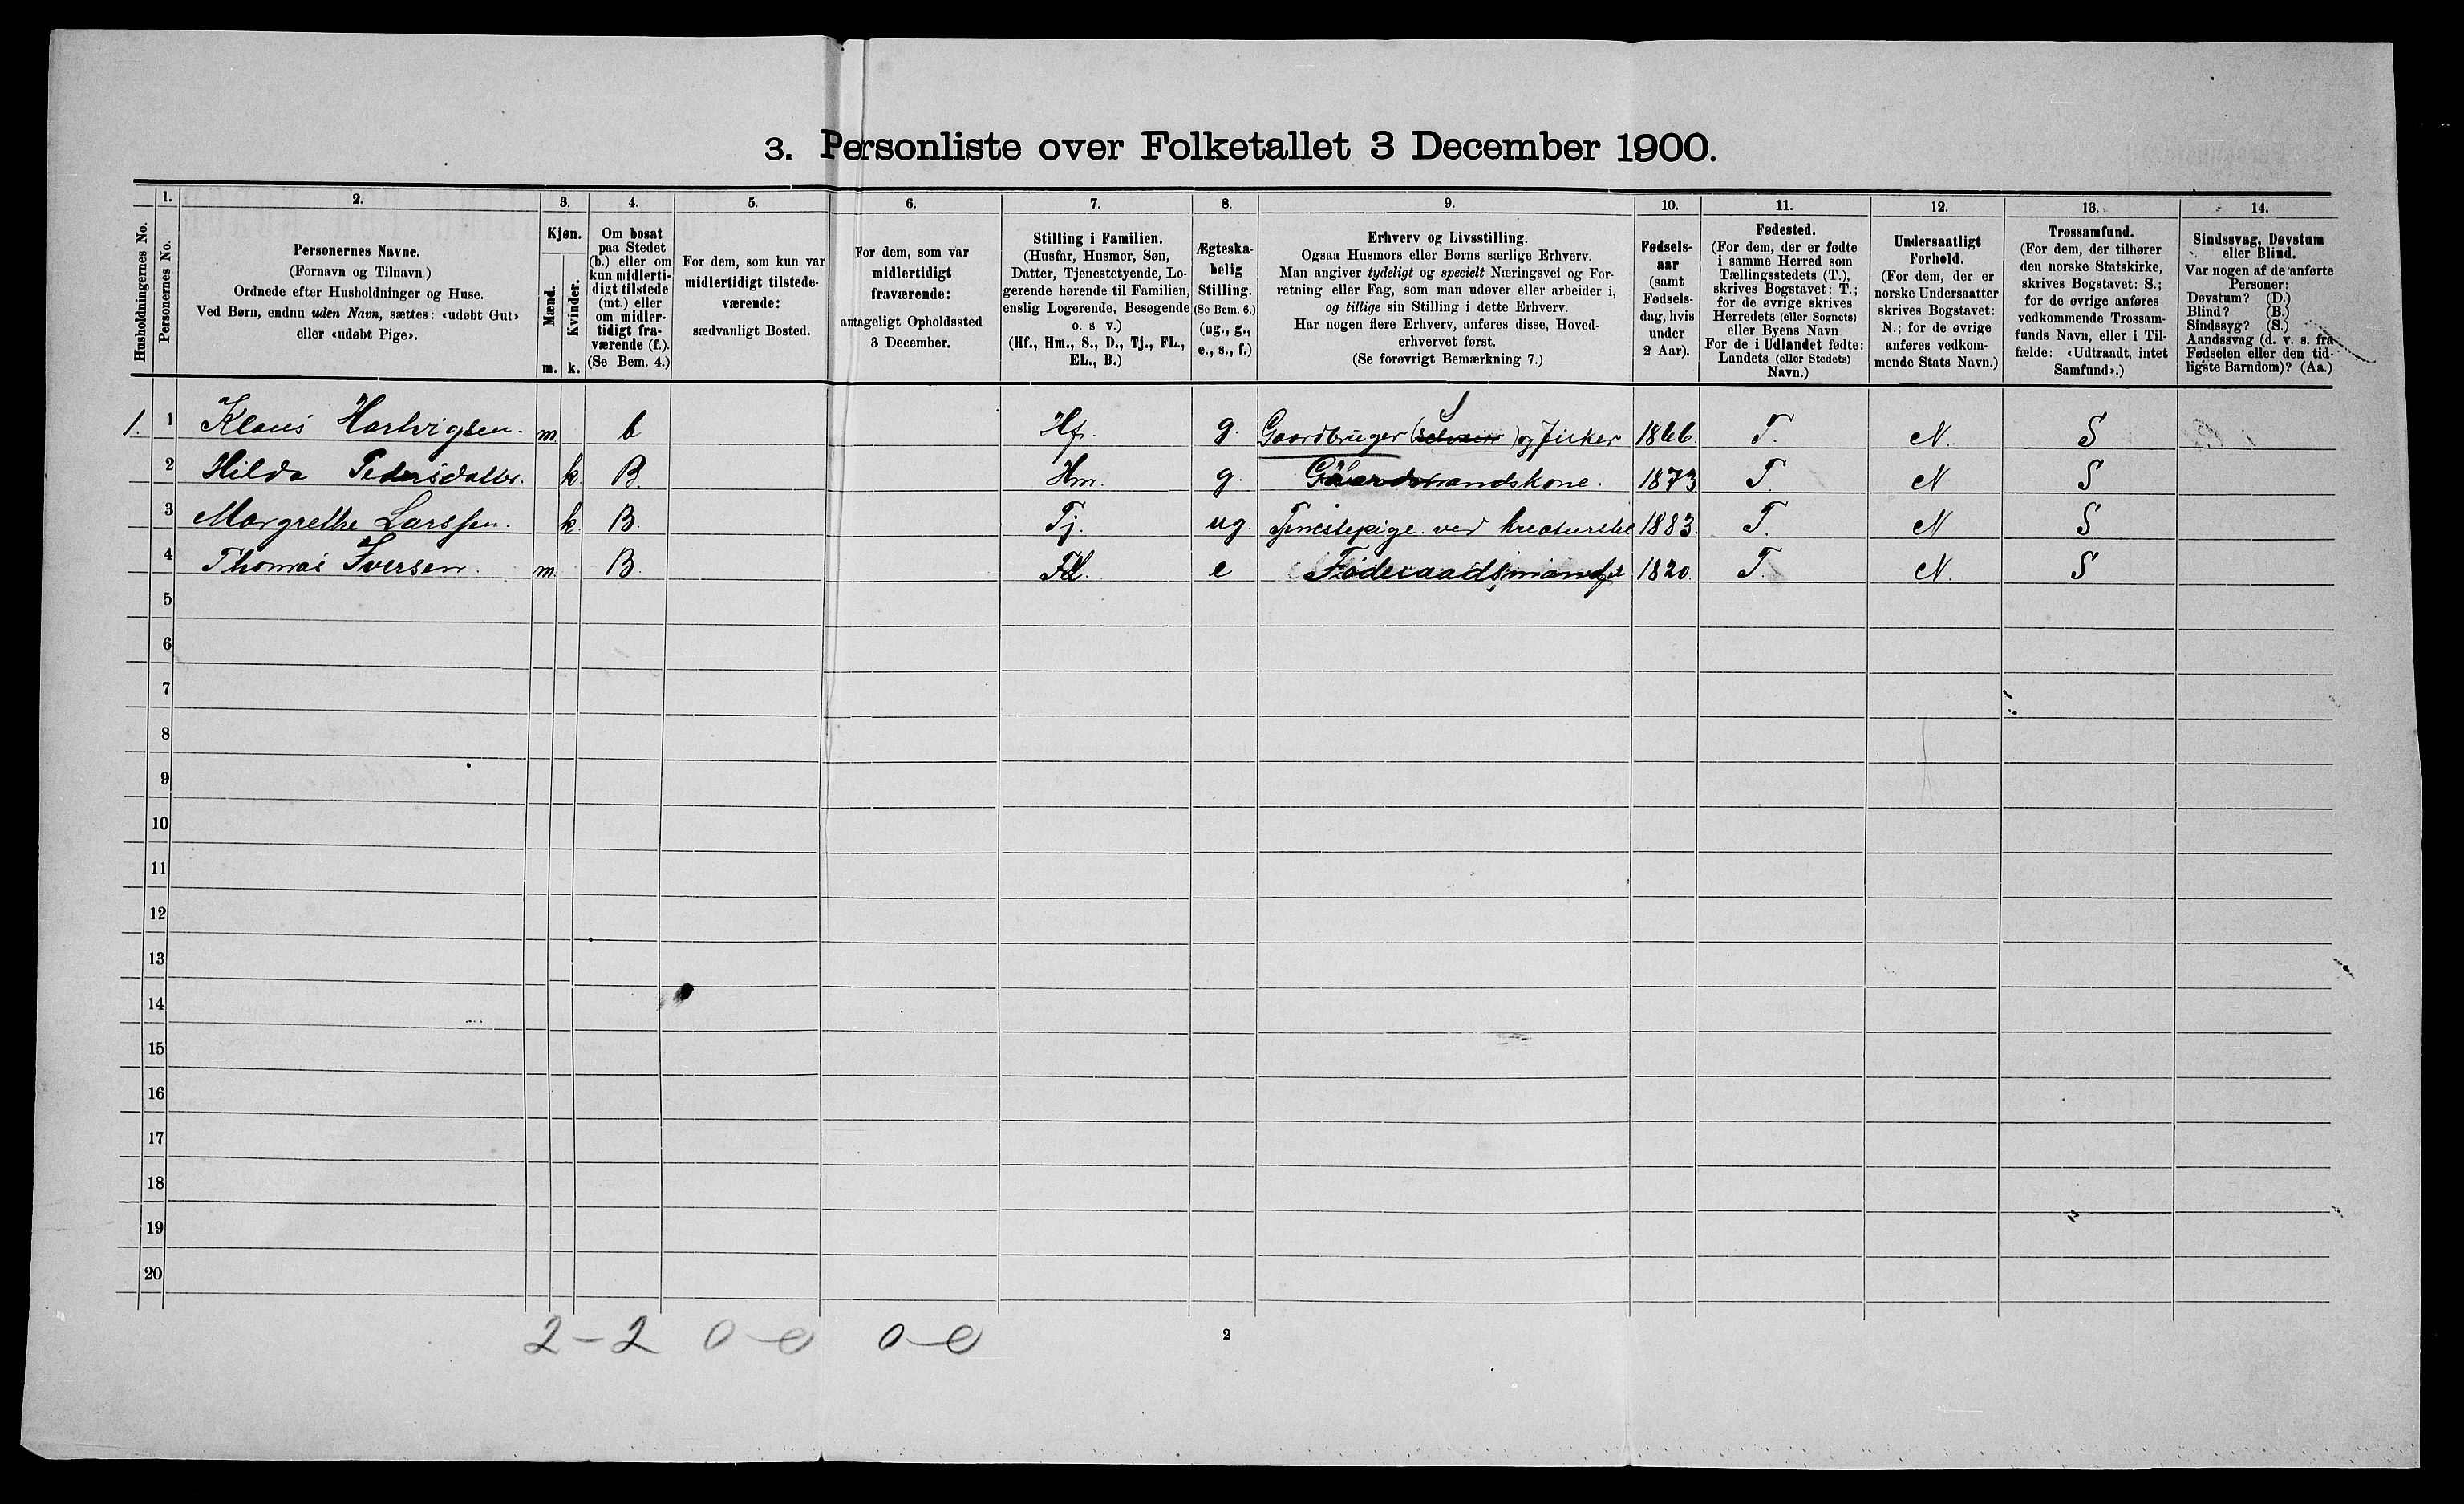 3. Personliste over Folketallet 3 December 1900.
Husholdningernes No.
1.
Personernes No.
2.
Personernes Navne.
(Fornavn og Tilnavn)
Ordnede efter Husholdninger og Huse.
Ved Børn, endnu uden Navn, sættes: «udøbt Gut»
eller «udøbt Pige».
3.
Kjøn.
Mænd.
m.
Kvinder.
k.
4.
Om bosat
paa Stedet
(b.) eller om
kun midlerti-
digt tilstede
(mt.) eller
om midler-
tidigt fra-
værende (f.).
(Se Bem. 4.)
5.
For dem, som kun var
midlertidigt tilstede-
værende:
sædvanligt Bosted.
6.
For dem, som var
midlertidigt
fraværende:
antageligt Opholdssted
3 December.
7.
Stilling i Familien.
(Husfar, Husmor, Søn,
Datter, Tjenestetyende, Lo-
gerende hørende til Familien,
enslig Logerende, Besøgende
o. s v.)
(Hf., Hm., S., D., Tj., FL.,
EL., B.)
8.
Ægteska-
belig
Stilling.
(Se Bem. 6.)
(ug., g.,
e., s., f.)
9.
Erhverv og Livsstilling.
Ogsaa Husmors eller Børns særlige Erhverv.
Man angiver tydeligt og specielt Næringsvei og For-
retning eller Fag, som man udøver eller arbeider i,
og tillige sin Stilling i dette Erhverv.
Har nogen flere Erhverv, anføres disse, Hoved-
erhvervet først.
(Se forøvrigt Bemærkning 7.)
10.
Fødsels-
aar
(samt
Fødsels-
dag, hvis
under
2 Aar).
11.
Fødested.
(For dem, der er fødte
i samme Herred som
Tællingsstedets (T.),
skrives Bogstavet: T.;
for de øvrige skrives
Herredets (eller Sognets)
eller Byens Navn
For de i Udlandet fødte:
Landets (eller Stedets)
Navn.)
12.
Undersaatligt
Forhold.
(For dem, der er
norske Undersaatter
skrives Bogstavet:
N.; for de øvrige
anføres vedkom-
mende Stats Navn.)
13.
Trossamfund.
(For dem, der tilhører
den norske Statskirke,
skrives Bogstavet: S.;
for de øvrige anføres
vedkommende Trossam-
funds Navn, eller i Til-
fælde: «Udtraadt, intet
Samfund».)
14.
Sindssvag, Døvstum
eller Blind.
Var nogen af de anførte
Personer:
Døvstum? (D.)
Blind? (B.)
Sindssyg? (S.)
Aandssvag (d. v. s. fra
Fødselen eller den tid-
ligste Barndom)? (Aa.)
1. 1 Klaus Hartvigsen. m b Hf. g. Gaardbruger (S) og Fisker 1866. T. N. S
2 Hilda Pedersdatter. k B. Hm. g. Gaardmandskone. 1873 T. N S
3 Margrethe Larssen. k. B. Tj. ug. Tjenestepige ved kreaturstel 1883. T. N S
4 Thomas Iversen. m. B. Fl. e Føderaadsmand 1820. T. N. S
5
6
7
8
9
10
11
12
13
14
15
16
17
18
19
20
2-2 0-0 0-0
2